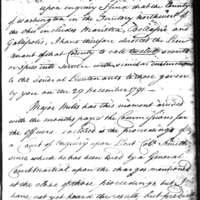 upon enquiry I find that the County
of Washington in the Territory northwest of
the Ohio includes Marietta, Bellepré and
Galiopolis, I have therefore directed the Lieu
tenant of that County to call twelve scouts
or spies into service with similar instructions
to the several Lieutenants to those given
by you on the 29 December 1791.—
Major Mills has this moment arrived
with the months pay & the Commissions for
the officers. enclosed is the proceedings of a
Court of Enquiry upon Lieut Colo
since which he has been tried by a General
Court Martial upon the charges mentioned
at the close of those proceedings but I
have not yet heard the result, but